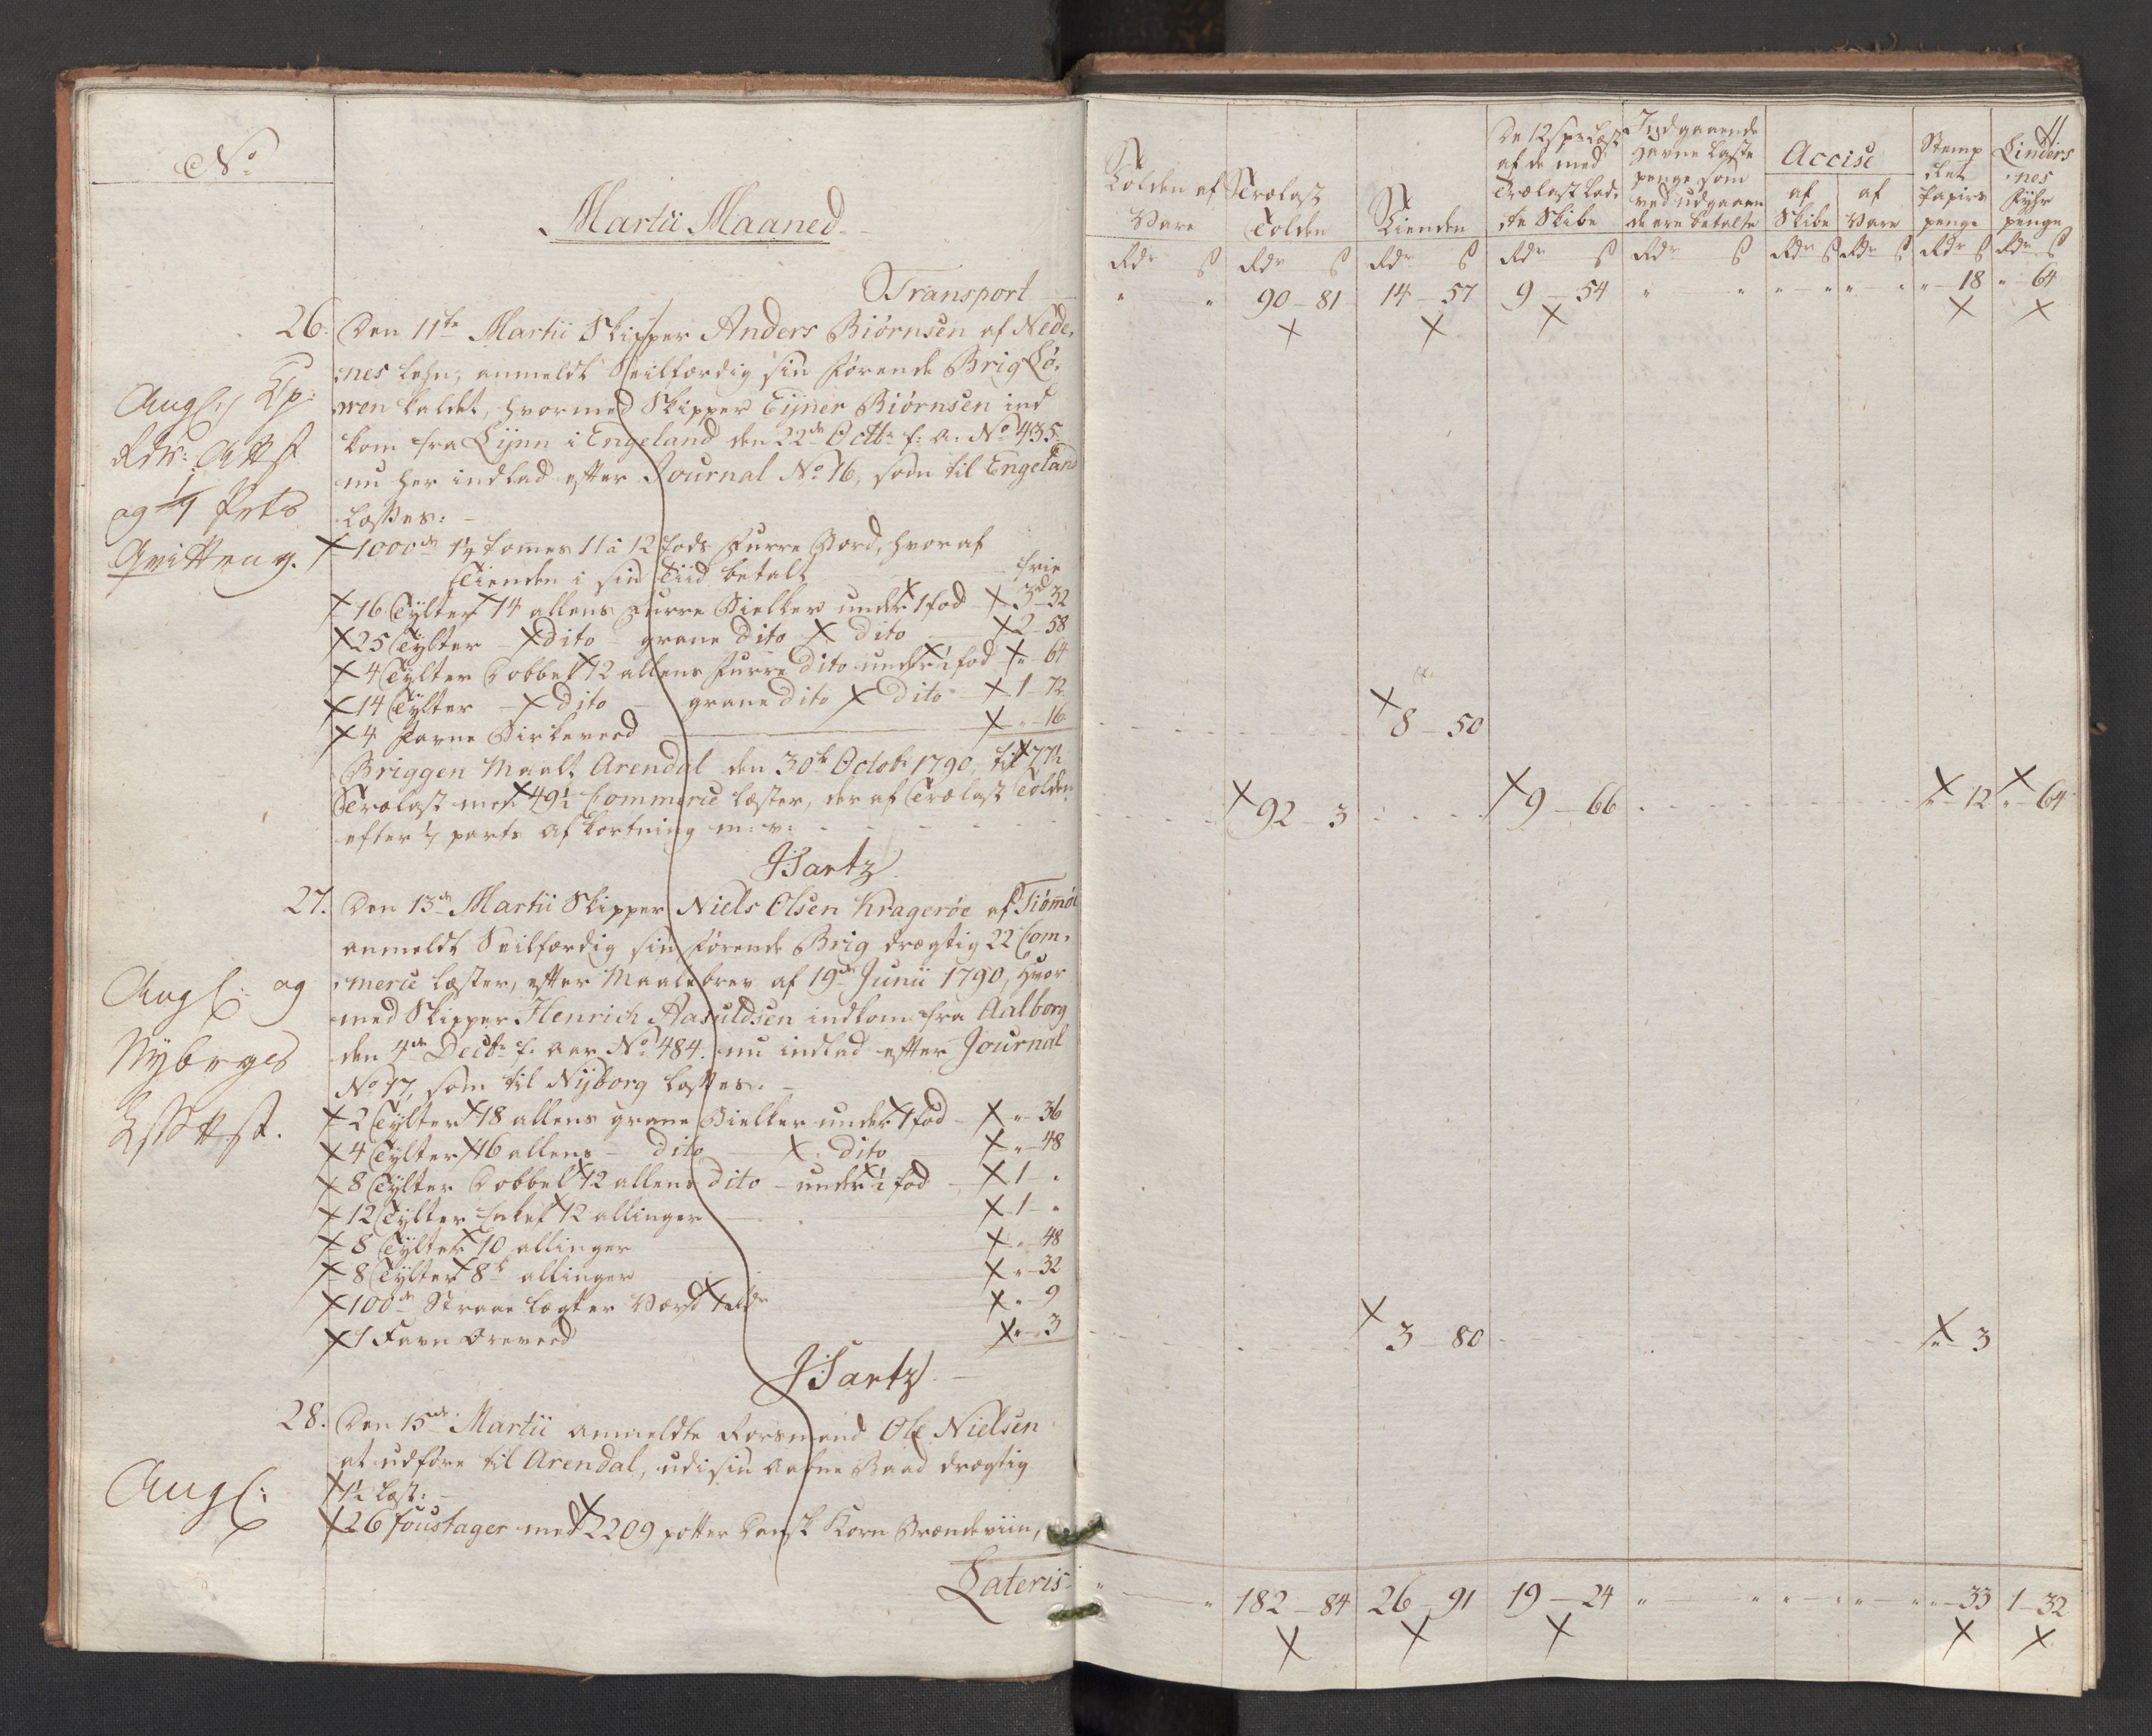 No
Martii Maaned
Transport
26. Den 11te Martii Skipper Anders Biørnsen af Nede-
nes Lehn, anmeldt Seilfærdig sin førende Brig Lø-
wen kaldet, hvormed Skipper Eijner Biørnsen ind
kom fra Lijnn i Engeland den 22de Octbr f: a: No 435
nu her indlad efter Journal No 16, som til Engeland
losses:
1000de 1¼ tommes 11 à 12 fods Furre Bord, hvoraf
Tienden i sin Tiid betalt frie
16 Tylter 14 allens Furre Bielker under 1 fod 3rd 32
25 Tylter dito grane dito dito 2 - 58
4 Tylter Dobbelt 12 allens Furre dito under 1 fod " 64
14 Tylter dito grane dito dito 1 - 72
4 Favne Birkeveed " 16
Briggen Maalt Arendal den 30te Octobr 1790, til 77½
Trælast med 49½ Commerce læster, der af Trælast Tolden
efter 1/7 parts afkortning m: v:
JSartz
Angl: Kp:
Rdr: Attst
og 1/7 Prts
Qvitteng.
27. Den 13de Martii Skipper Niels Olsen Kragerøe af Tiømøe
anmeldt Seilfærdig sin førende Brig drægtig 22 Com-
merce læster, efter Maalebrev af 19de Junii 1790, hvor
med Skipper Henrich Aasuldsen indkom fra Aalborg
den 4de Decbr f: aar No 484. nu indlad efter Journal
No 17, som til Nijborg losses.
2 Tylter 18 allens grane Bielker under 1 fod " 36
4 Tylter 16 allens dito dito " 48
8 Tylter Dobbelt 12 allens dito under 1 fod 1 "
12 Tylter Enkel 12 allinger 1 "
8 Tylter 10 allinger " 48
8 Tylter 8te allinger " 32
100de Straae lægter Værd 1 Rdr " 9
1 Favn Oreveed " 3
JSartz
Angl: og
Nyborgs
28. Den 15de Martii anmeldte Forsmand Ole Nielsen
at udføre til Arendal, udi sin aabne Baad drægtig
1½ Læst:
26 foustager med 2209 potter Dansk Korn Brændeviin,
Angl:
Lateris
11
Tolden af Vare
Trælast Tolden
Tienden
De 12 s pr Læst af de med Trælast lad-te Skibe
Indgaaende Havne laste penge som ved udgaaende ere betalte
Accise
af Skibe
af Vare
Stemp let Papirs penge
Linders nes Fyhr penge
Rdr s Rdr s Rdr s Rdr s Rdr s Rdr s Rdr s Rdr s Rdr s
" " 90 - 81 14 - 57 9 - 54 " " " " " " " - 18 " - 64
8 - 50
92 - 3 9 - 66 " - 12 " - 64
3 - 80 " - 3
" " 182 - 84 26 - 91 19 - 24 " " " " " " " - 33 1 - 32